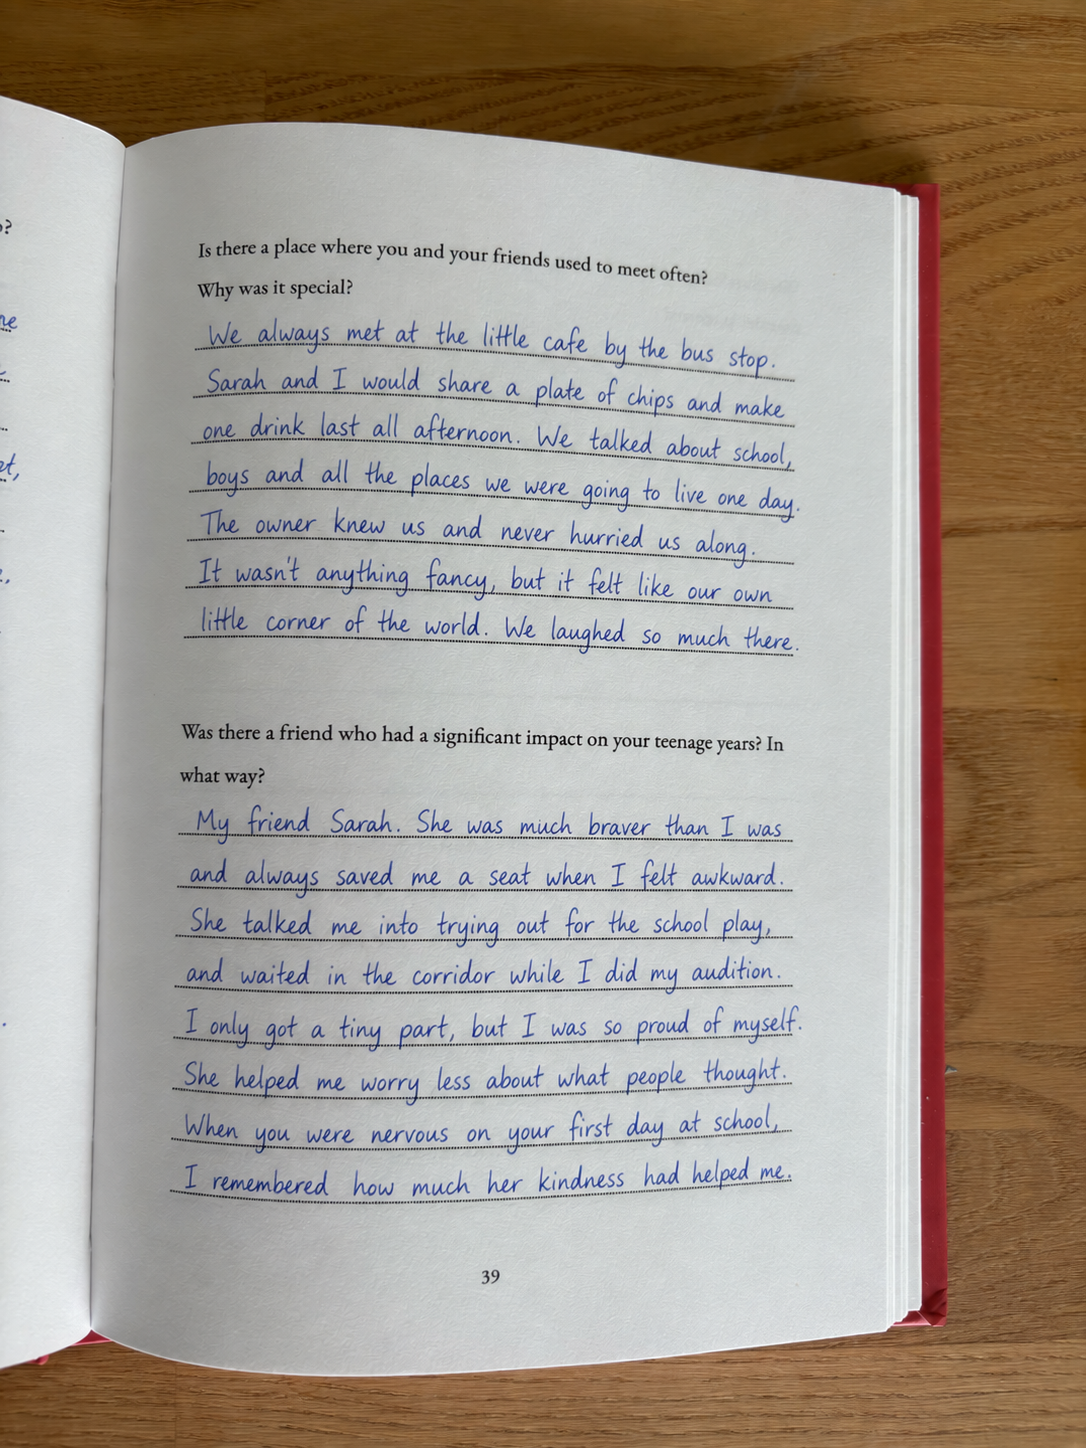 Is there a place where you and your friends used to meet often?
Why was it special?
We always met at the little cafe by the bus stop.
Sarah and I would share a plate of chips and make
one drink last all afternoon. We talked about school,
boys and all the places we were going to live one day.
The owner knew us and never hurried us along.
It wasn't anything fancy, but it felt like our own
little corner of the world. We laughed so much there.
Was there a friend who had a significant impact on your teenage years? In
what way?
My friend Sarah. She was much braver than I was
and always saved me a seat when I felt awkward.
She talked me into trying out for the school play,
and waited in the corridor while I did my audition.
I only got a tiny part, but I was so proud of myself.
She helped me worry less about what people thought.
When you were nervous on your first day at school,
I remembered how much her kindness had helped me.
39